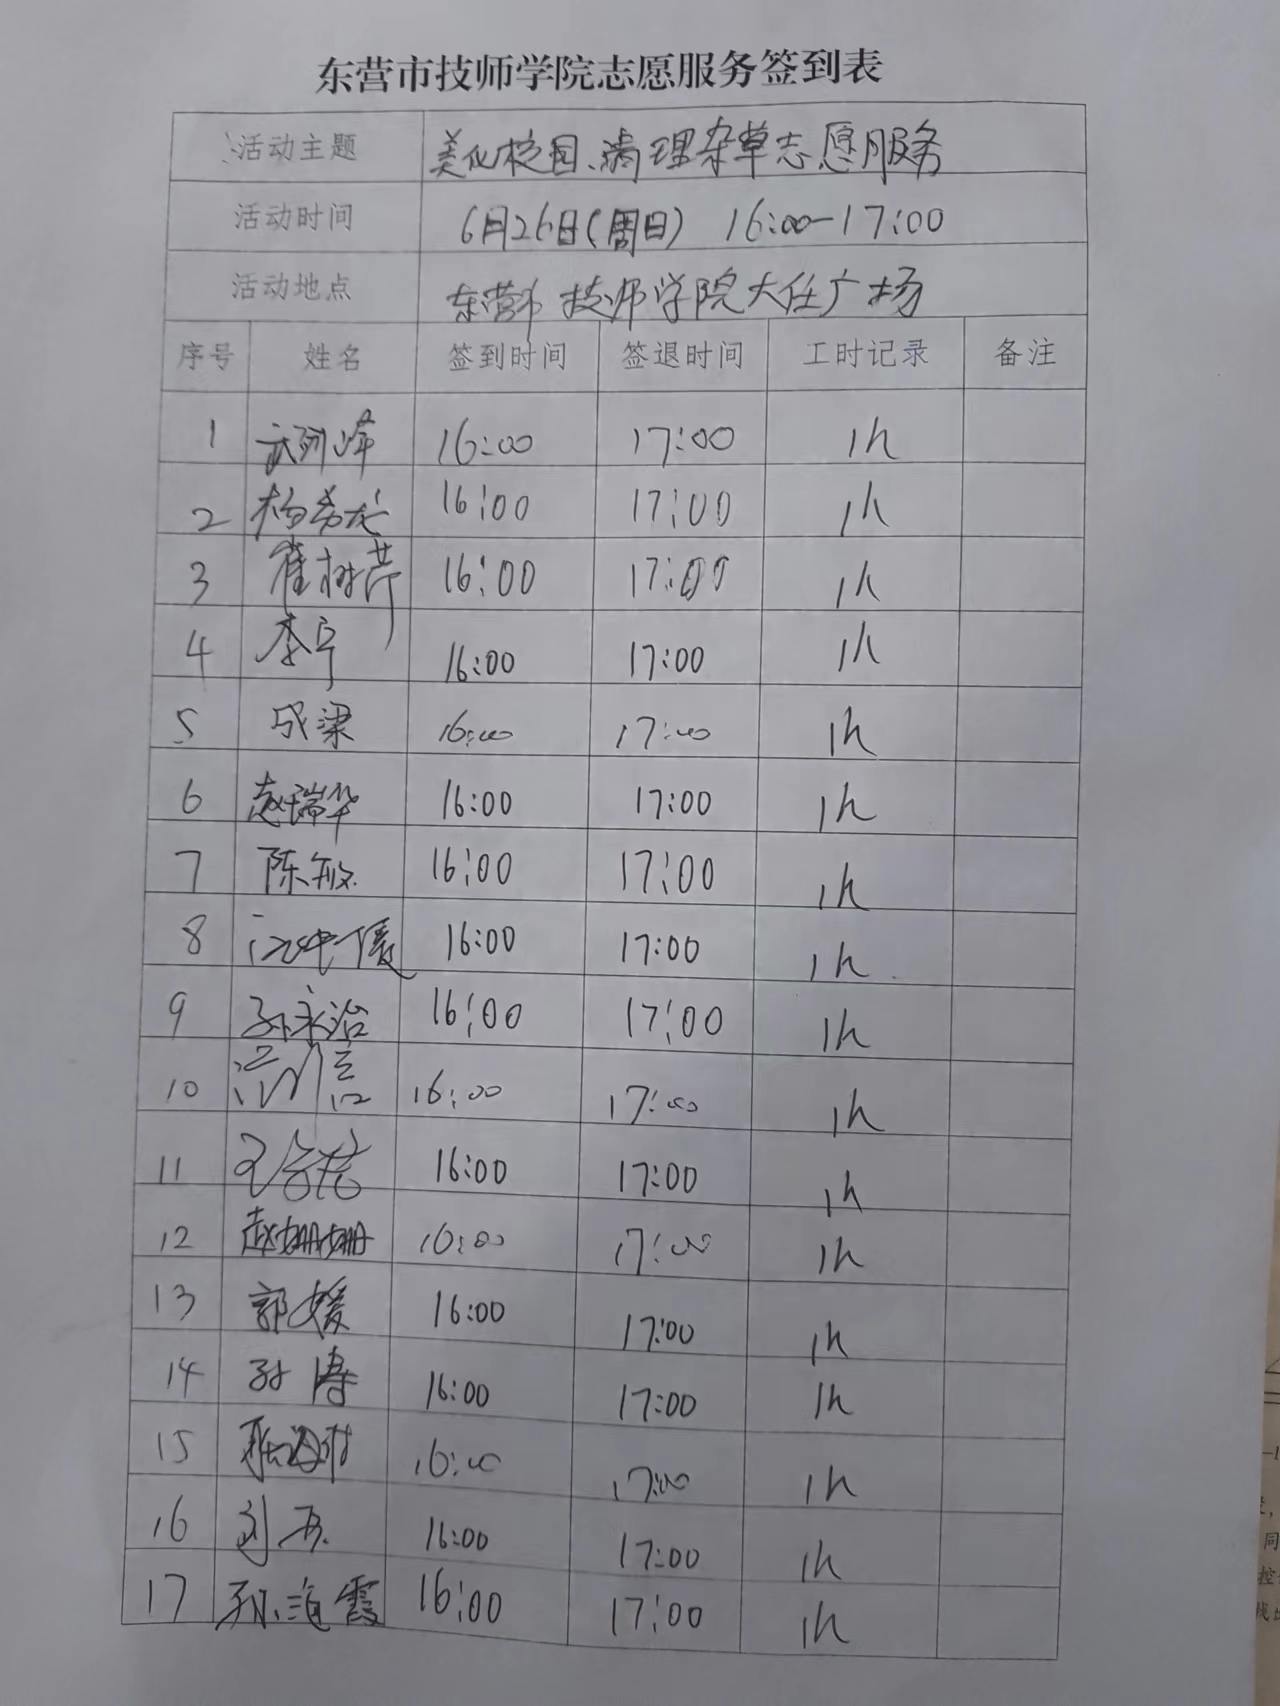 东营市技师学院志愿服务签到表
活动主题 美化校园、清理杂草志愿服务
活动时间 6月26日(周日) 16:00-17:00
活动地点 东营市技师学院大任广场
序号 姓名 签到时间 签退时间 工时记录 备注
1 武列峰 16:00 17:00 1h
2 杨希龙 16:00 17:00 1h
3 崔树芹 16:00 17:00 1h
4 李宁 16:00 17:00 1h
5 成梁 16:00 17:00 1h
6 赵瑞华 16:00 17:00 1h
7 陈敏 16:00 17:00 1h
8 16:00 17:00 1h
9 孙永治 16:00 17:00 1h
10 16:00 17:00 1h
11 16:00 17:00 1h
12 赵姗姗 16:00 17:00 1h
13 郭媛 16:00 17:00 1h
14 孙涛 16:00 17:00 1h
15 16:00 17:00 1h
16 16:00 17:00 1h
17 16:00 17:00 1h